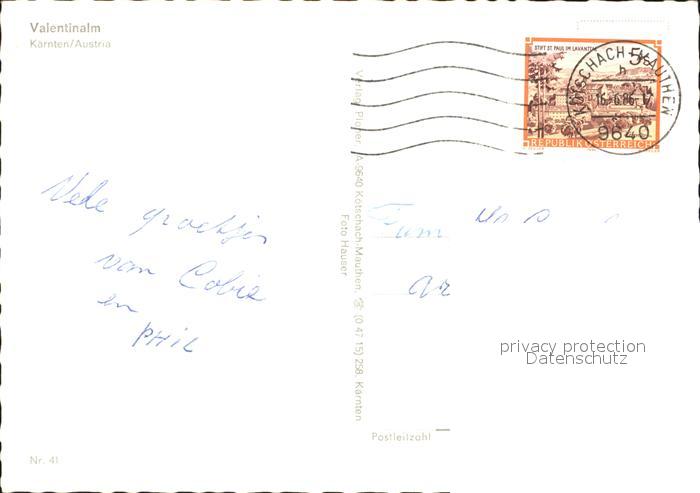 Valentinalm
Kärnten/Austria
STIFT ST. PAUL IM LAVANTTAL
5
REPUBLIK ÖSTERREICH
KÖTSCHACH-MAUTHEN
9640
Vele groetjes
van Cobie
en
PHIL
Verlag Ploner, A-9640 Kötschach-Mauthen, ☏ (0 47 15) 258, Kärnten
Foto Hauser
Fam
privacy protection
Datenschutz
Postleitzahl
Nr. 41